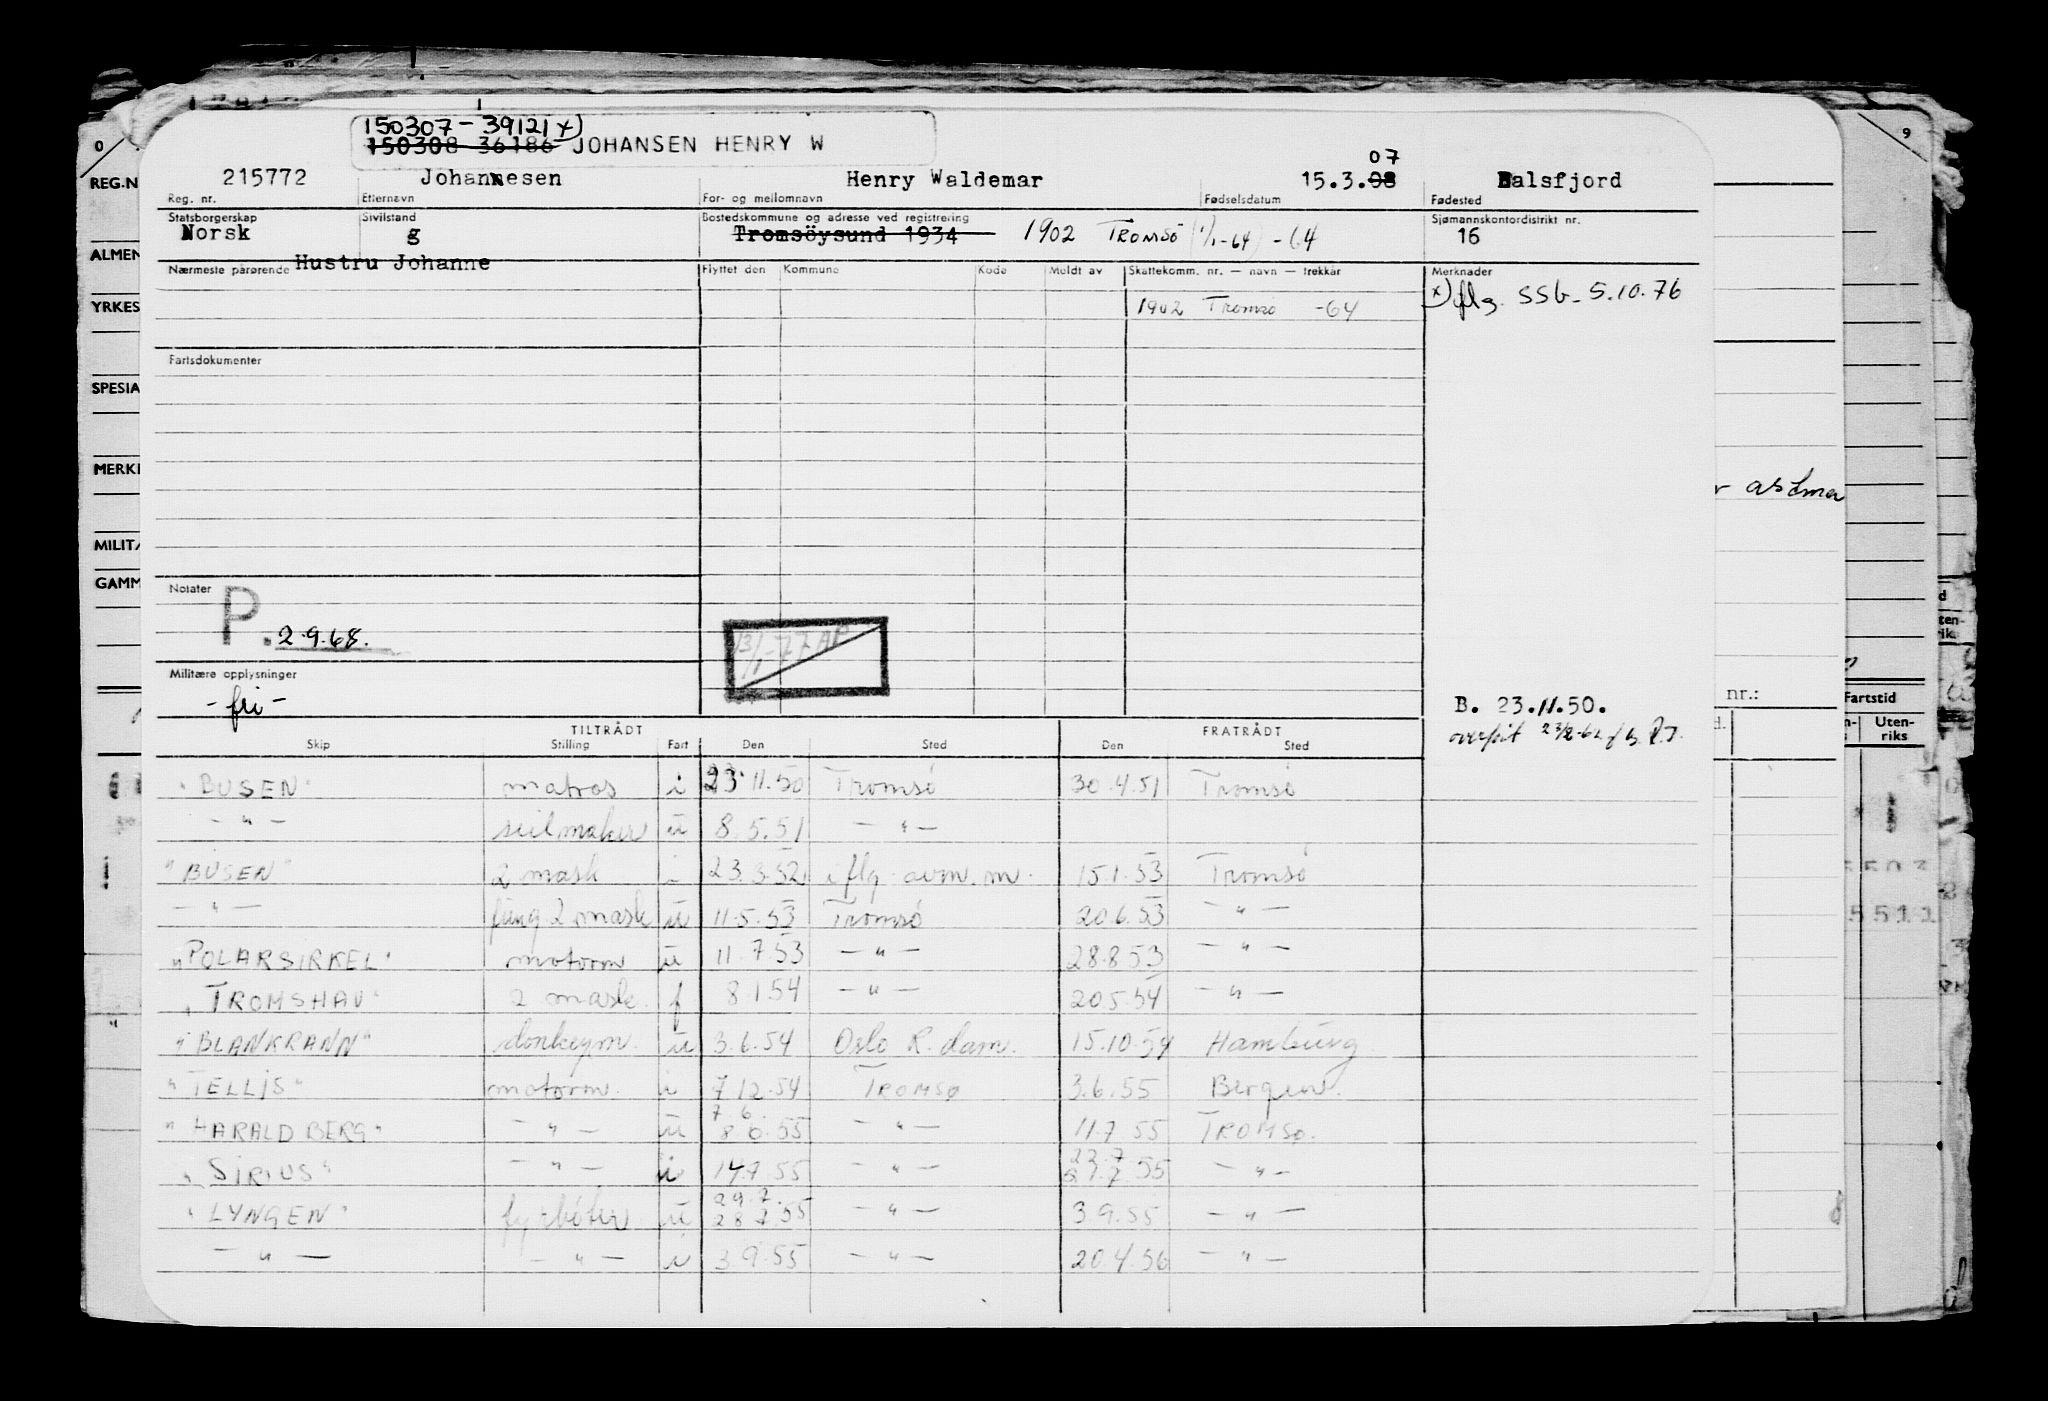 150307-39121 x)
150308 36186 JOHANSEN HENRY W
0 9
REG.N
215772 Johannesen Henry Waldemar 15.3.08 07 Balsfjord
Reg. nr. Etternavn For- og mellomnavn Fødselsdatum Fødested
Statsborgerskap Sivilstand Bostedskommune og adresse ved registrering Sjømannskontordistrikt nr.
Norsk g Tromsöysund 1934 1902 TROMSØ (1/1-64) -64 16
ALMEN
Nærmeste pårørende Hustru Johanne Flyttet den Kommune Kode Meldt av Skattekomm. nr. — navn — trekkår Merknader
YRKES
1902 Tromsø -64 x) flg. SSb. 5.10.76
Fartsdokumenter
SPESIA
MERKI
astma
MILITÆ
GAMM
Notater
P. 2.9.68.
13/1-77 AP
Militære opplysninger
-fri-
B. 23.11.50.
nr.:
Fartstid
Uten-
riks
TILTRÅDT FRATRÅDT
Skip Stilling Fart Den Sted Den Sted
"BUSEN" matros i 23.11.50 Tromsø 30.4.51 Tromsø
— " — seilmaker u 8.5.51 — " —
"BUSEN" 2 mask i 23.3.52 iflg. avm.m. 15.1.53 Tromsø
— " — fung 2 mask u 11.5.53 Tromsø 20.6.53 — " —
"POLARSIRKEL" motorm u 11.7.53 — " — 28.8.53 — " —
"TROMSHAV" 2 mask. f 8.1.54 — " — 20.5.54 — " —
"BLANKRANN" donkeym. u 3.6.54 Oslo R.dam. 15.10.54 Hamburg
"TELLIS" motorm. i 7.12.54 TROMSØ 3.6.55 Bergen.
7.6.
"HARALD BERG" — " — u 8.6.55 — " — 11.7.55 TROMSØ.
22.7
"SIRIUS" — " — i 14.7.55 — " — 27.7.55 — " —
29.7.
"LYNGEN" fyrbøter u 28.7.55 — " — 3.9.55 — " —
— " — — " — i 3.9.55 — " — 20.4.56 — " —